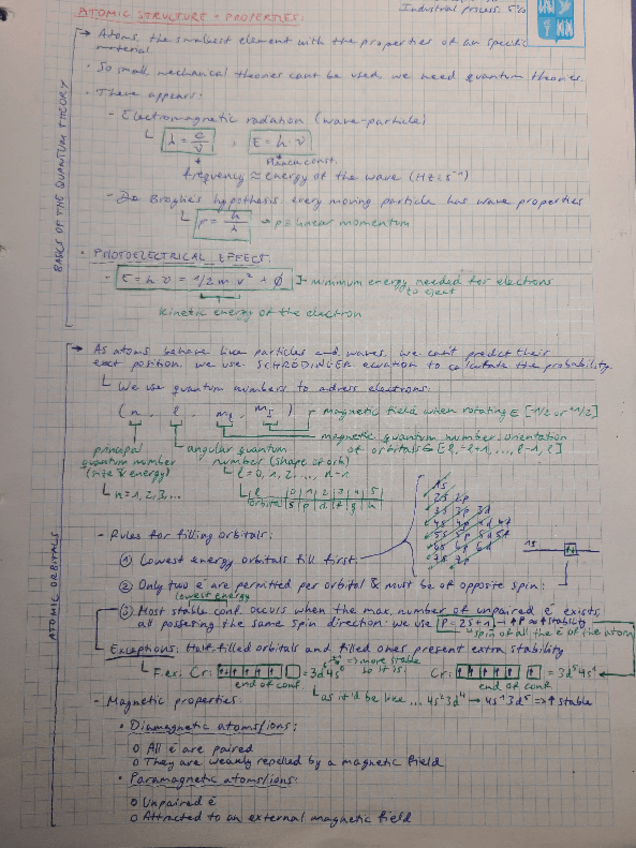 ATOMIC STRUCTURE - PROPERTIES:
Industrial process: 5%
→ Atoms, the smallest element with the properties of an specific
material
· So small, mechanical theories cant be used, we need quantum theories.
· There appears:
- Electromagnetic radiation (wave-particle)
λ = c/ν , E = h · ν
Planck const.
frequency ≈ energy of the wave (Hz = s⁻¹)
- De Broglie's hypothesis, every moving particle has wave properties
p = h/λ → p = linear momentum
BASICS OF THE QUANTUM THEORY
· PHOTOELECTRICAL EFFECT:
- E = h ν = 1/2 m v² + Φ ]- minimum energy needed for electrons
to eject
kinetic energy of the electron
→ As atoms behave like particles and waves, we can't predict their
exact position, we use SCHRÖDINGER equation to calculate the probability.
We use quantum numbers to adress electrons:
(n, l, ml, ms) magnetic field when rotating ∈ [-1/2 or +1/2]
magnetic quantum number, orientation
of orbitals ∈ [l, -l+1, ..., l-1, l]
principal
quantum number
(size & energy)
n = 1, 2, 3, ...
angular quantum
number (shape of orb)
l = 0, 1, 2, ... n-1
l | 0 | 1 | 2 | 3 | 4 | 5
orbital | s | p | d | f | g | h
1s
2s 2p
3s 3p 3d
4s 4p 4d 4f
5s 5p 5d 5f
6s 6p 6d
7s 7p
ATOMIC ORBITALS
- Rules for filling orbitals:
① Lowest energy orbitals fill first.
1s
② Only two e⁻ are permitted per orbital & must be of opposite spin:
lowest energy
③ Most stable conf. occurs when the max. number of unpaired e⁻ exists,
all possering the same spin direction. we use P = 2S+1 → ↑P ≈ ↑stability
spin of all the e⁻ of the atom
Exceptions: Half filled orbitals and filled ones, present extra stability
F.ex: Cr: = 3d⁴4s² => more stable
so it is:
Cr: = 3d⁵4s¹
end of conf.
end of conf.
as it'd be like ... 4s²3d⁴ → 4s¹3d⁵ => ↑ stable
- Magnetic properties:
· Diamagnetic atoms/ions:
o All e⁻ are paired
o They are weakly repelled by a magnetic field
· Paramagnetic atoms/ions:
o Unpaired e⁻
o Attracted to an external magnetic field